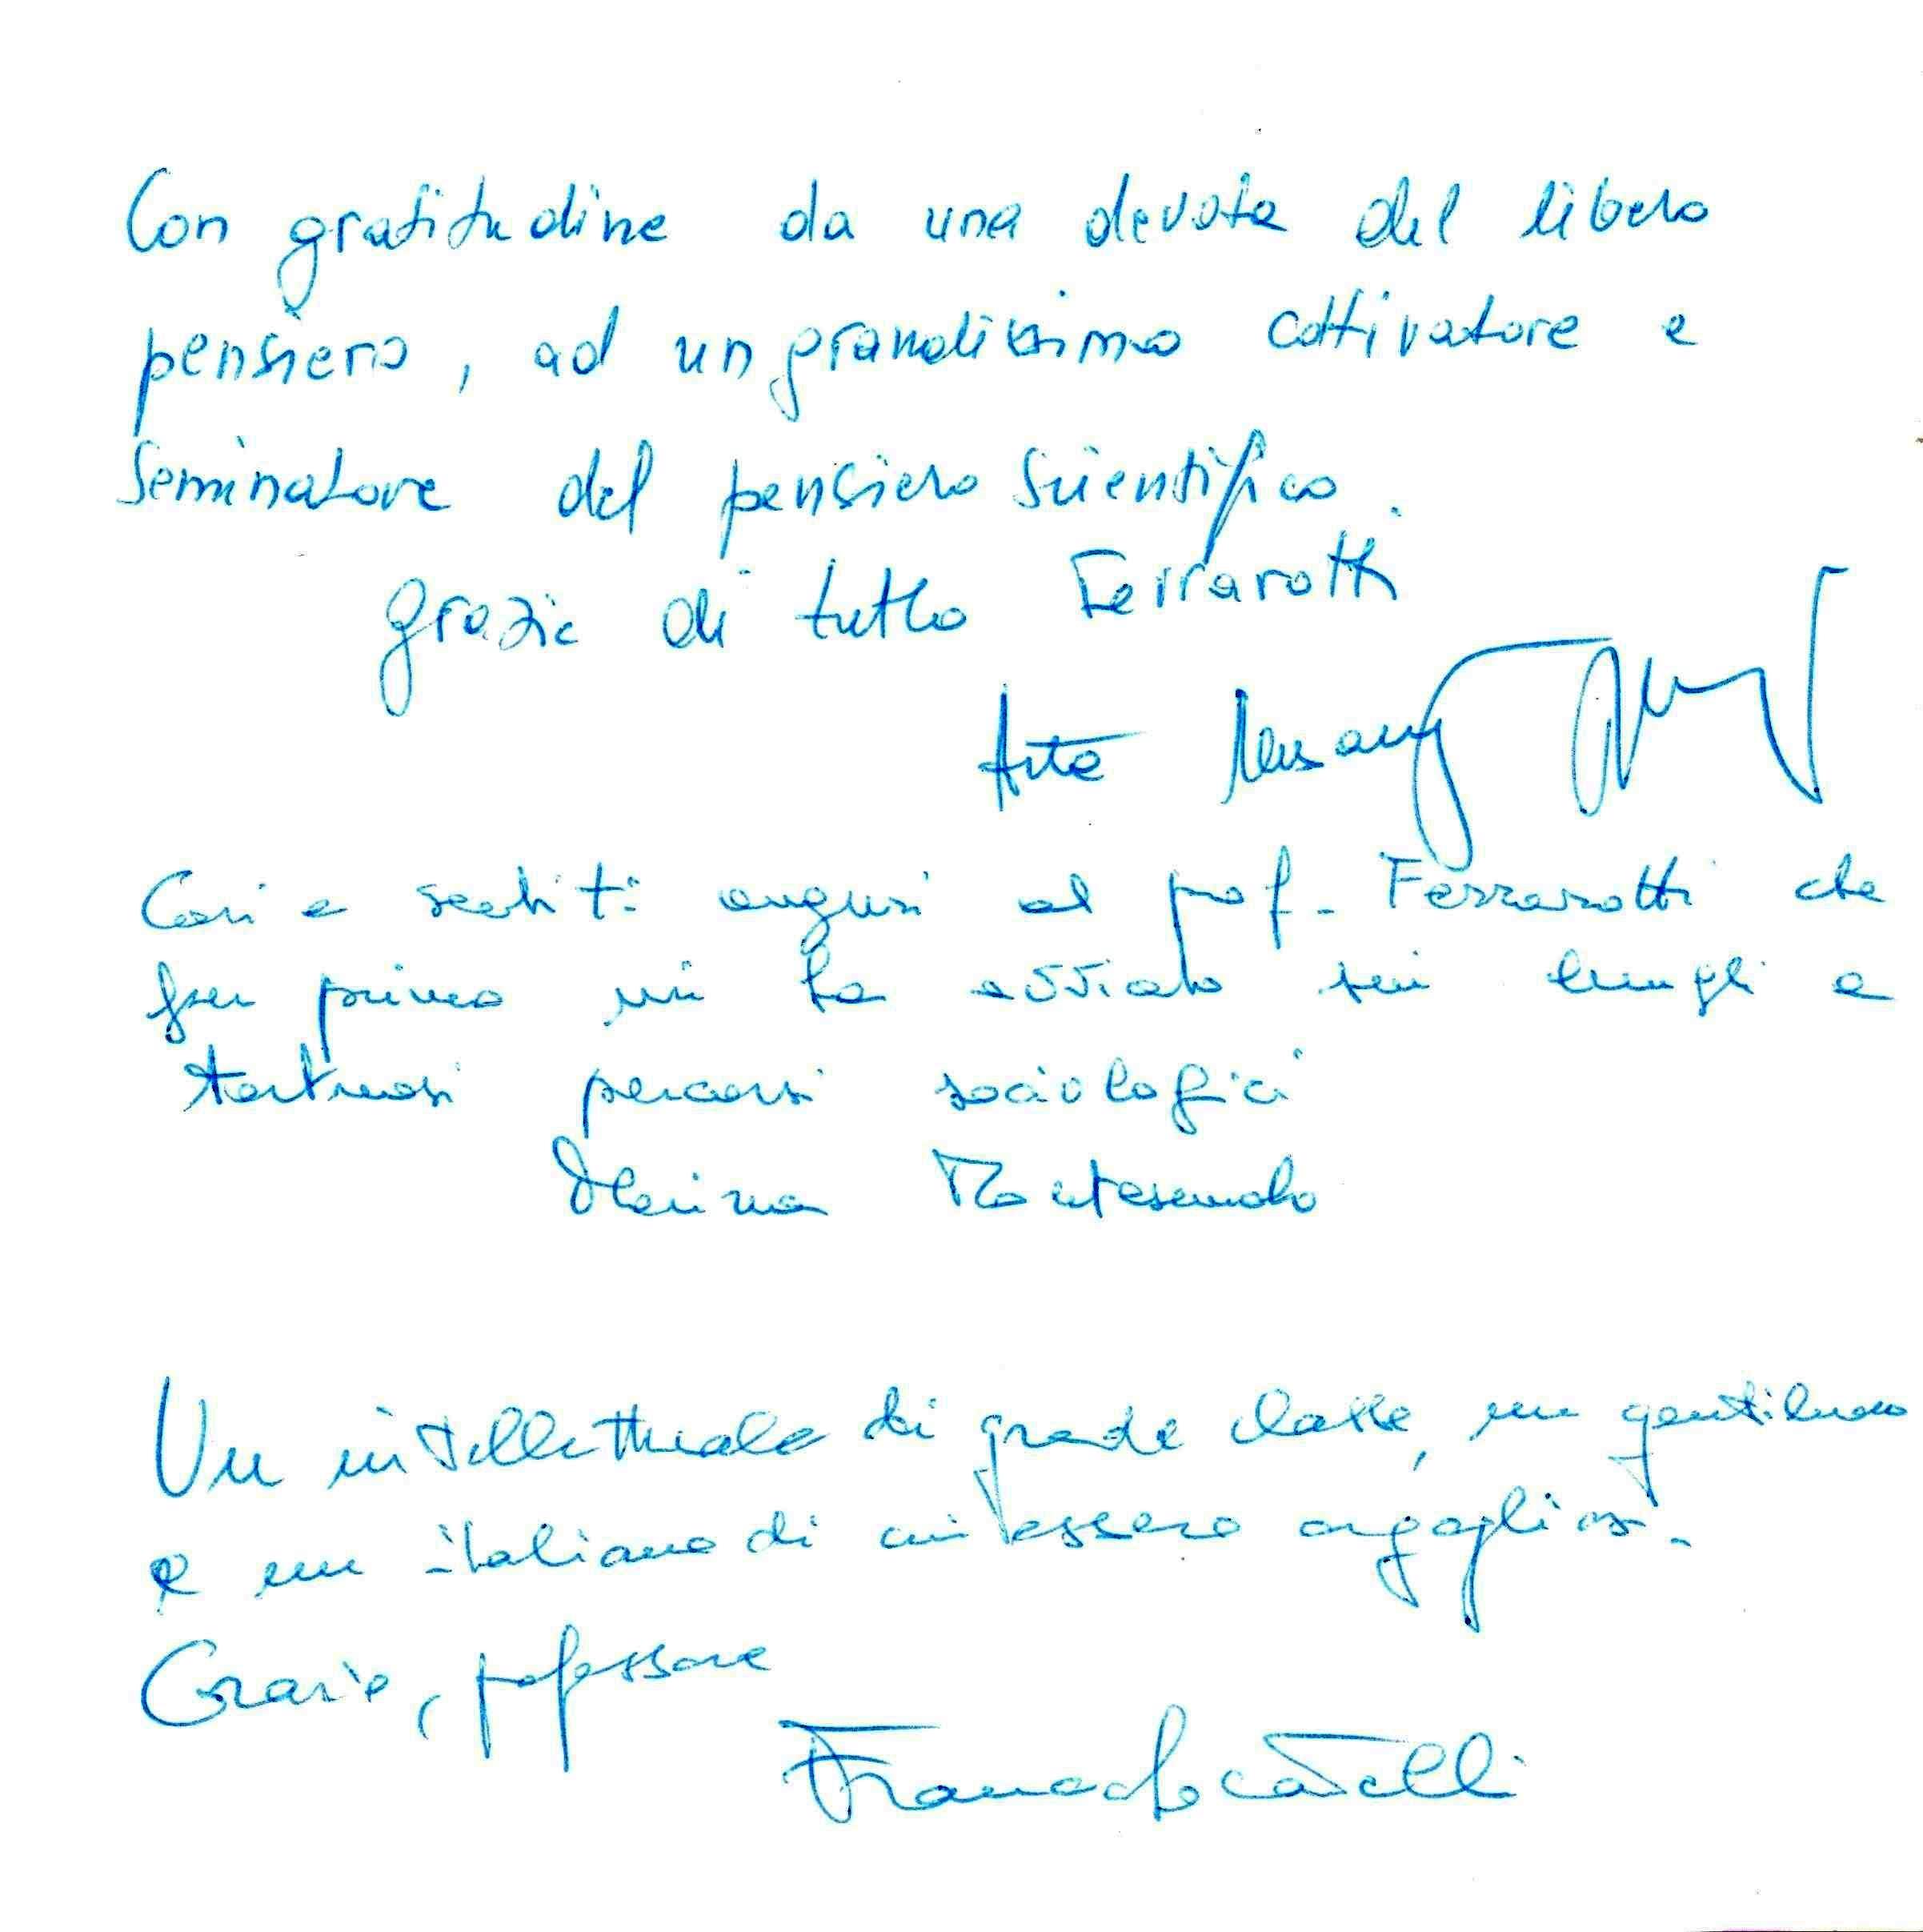 Con gratitudine da una devota del libero
pensiero, ad un grandissimo coltivatore e
seminatore del pensiero scientifico.
grazie di tutto Ferrarotti
Cari e sentiti auguri al prof. Ferrarotti che
per primo mi ha avviato sui lunghi e
tortuosi percorsi sociologici
Marina
Un intellettuale di grande classe, un gentiluomo
e un italiano di cui essere orgogliosi.
Grazie, professore
Franco Locatelli